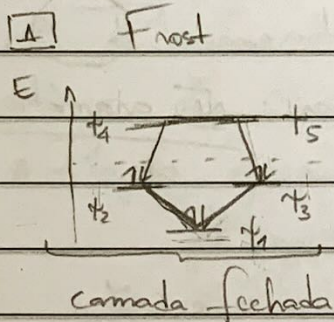 1 Frost
E
ψ4 ψ5
ψ2 ψ3
ψ1
camada fechada